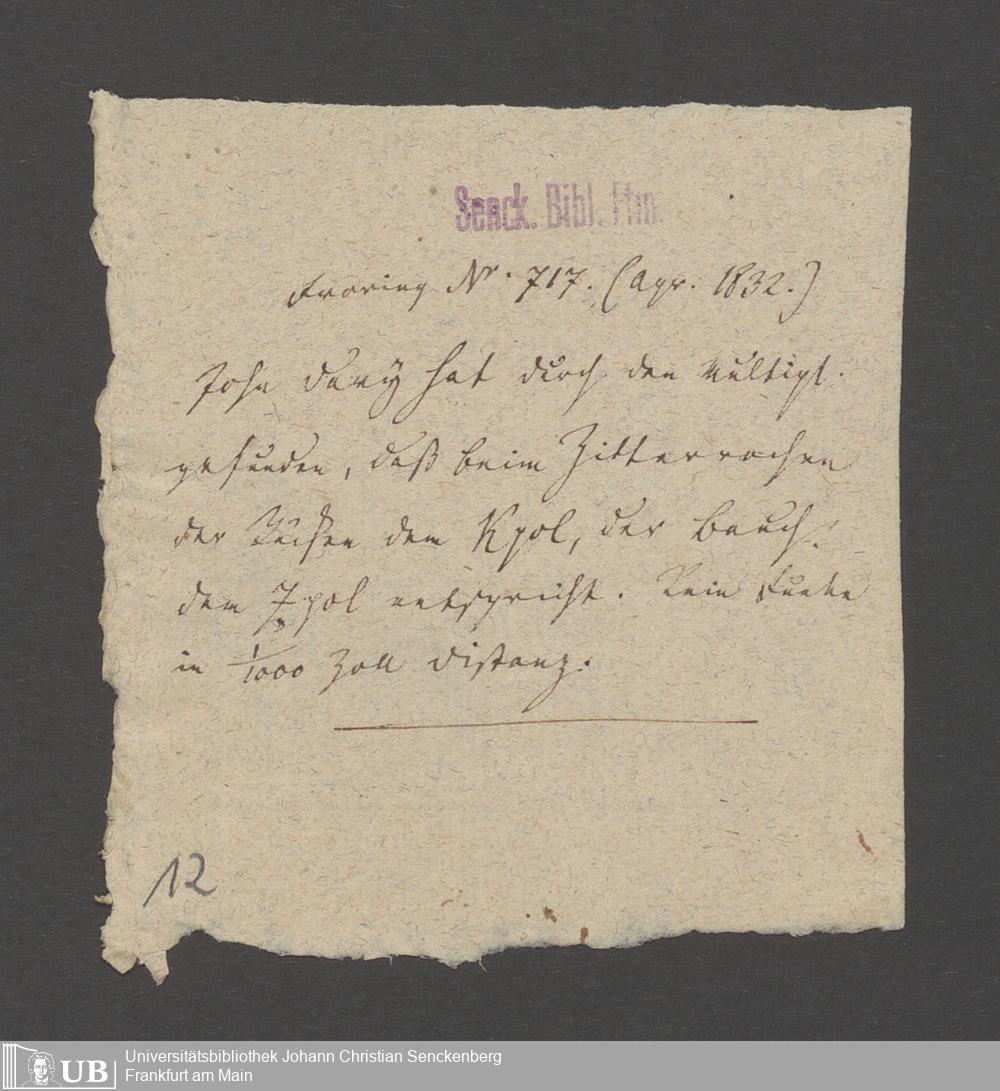 Senck. Bibl. Ffm.
Froriep Nr. 717. (Apr. 1832.)
John Davy hat durch den Multipl.
gefunden, daß beim Zitterrochen
der Rücken dem Kpol, der Bauch
dem Zpol entspricht. Kein Funke
in 1/1000 Zoll Distanz.
12
UB
Universitätsbibliothek Johann Christian Senckenberg
Frankfurt am Main